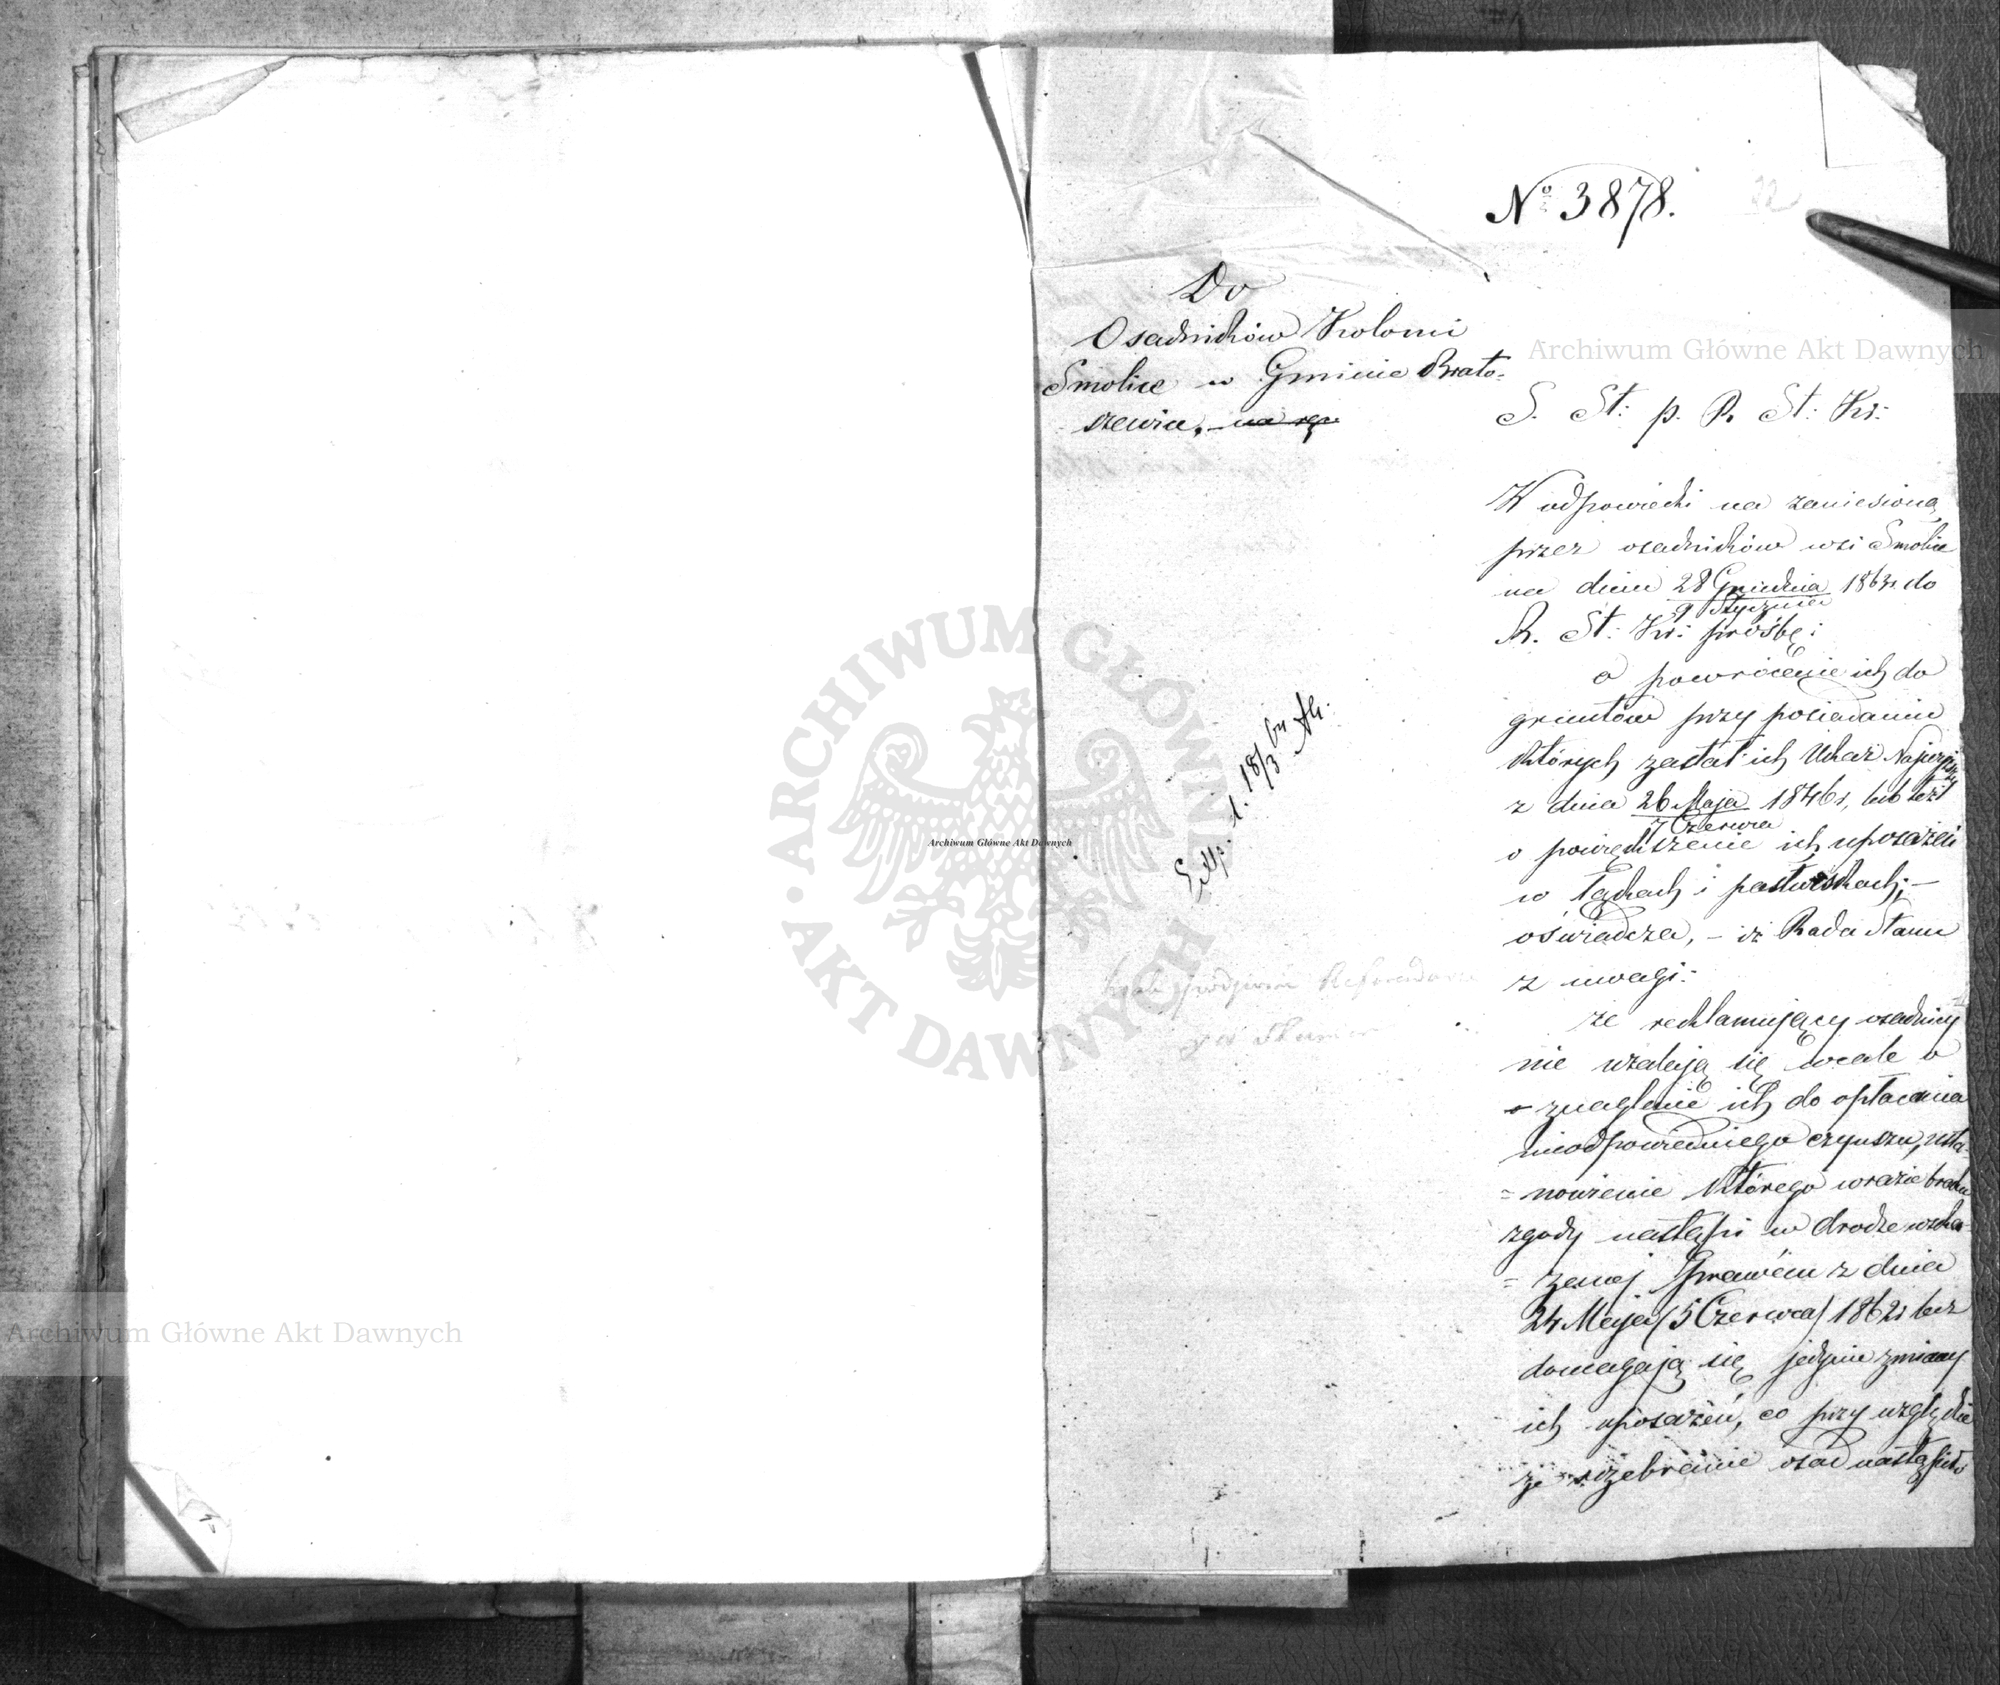 No 3878.
22
Do
Osadników Kolonii
Smolice w Gminie Brato-
szewice, na ręc.
S. St: p. R. St: Kr:
W odpowiedzi na zaniesioną
przez osadników wsi Smolice
na dniu 28 Grudnia 1863r. do
9 Stycznia
R. St: Kr: prośbę:
o powrócenie ich do
gruntów przy posiadaniu
których zastał ich Ukaz Najwyższy
z dnia 26 Maja 1846r, lub też
7 Czerwca
o powiększenie ich uposażeń
w łąkach i pastwiskach; –
oświadcza, – iż Rada Stanu
z uwagi:
że reklamujący osadnicy
nie użalają się wcale o
o znaglenie ich do opłacania
nieodpowiedniego czynszu, usta-
= nowienie którego w razie braku
zgody nastąpi w drodze wska-
= zanej Prawem z dnia
24 Maja (5 Czerwca) 1862r lecz
domagają się jedynie zmiany
ich uposażeń, co przy względzie
że rozebranie osad nastąpiło
Exp. d. 18/3 64 Ar.
Referendarz
Stanu
Archiwum Główne Akt Dawnych
Archiwum Główne Akt Dawnych
Archiwum Główne Akt Dawnych
ARCHIWUM GŁÓWNE · AKT DAWNYCH ·